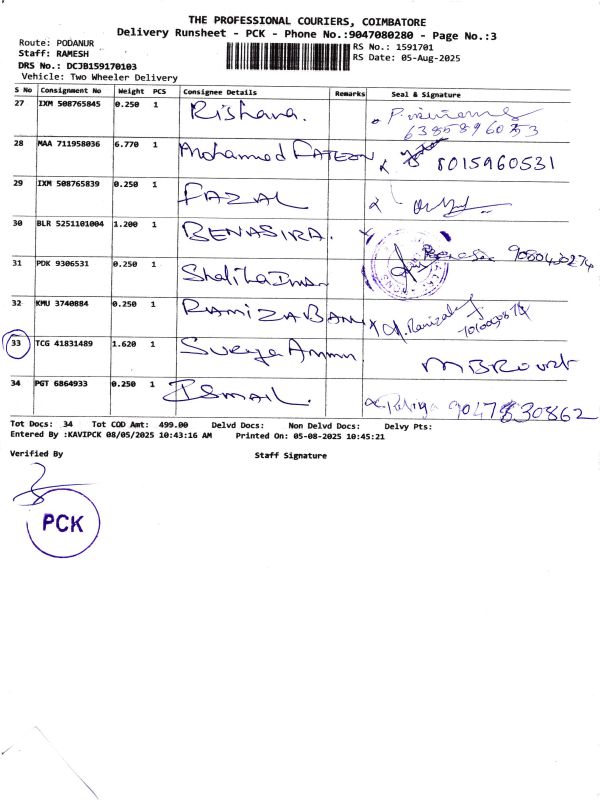 THE PROFESSIONAL COURIERS, COIMBATORE
Delivery Runsheet - PCK - Phone No.:9047080280 - Page No.:3
Route: PODANUR
Staff: RAMESH
DRS No.: DCJB159170103
Vehicle: Two Wheeler Delivery
RS No.: 1591701
RS Date: 05-Aug-2025
S No Consignment No Weight PCS Consignee Details Remarks Seal & Signature
27 IXM 508765845 0.250 1 Rishana.
28 MAA 711958036 6.770 1 Mohammed 8015960531
29 IXM 508765839 0.250 1 FAZAL
30 BLR 5251101004 1.200 1 BENASIRA.
31 PDK 9306531 0.250 1
32 KMU 3740884 0.250 1 RAMIZA BANU
33 TCG 41831489 1.620 1 Surya
34 PGT 6864933 0.250 1 ISMAIL.
Tot Docs: 34 Tot COD Amt: 499.00 Delvd Docs: Non Delvd Docs: Delvy Pts:
Entered By :KAVIPCK 08/05/2025 10:43:16 AM Printed On: 05-08-2025 10:45:21
Verified By Staff Signature
PCK